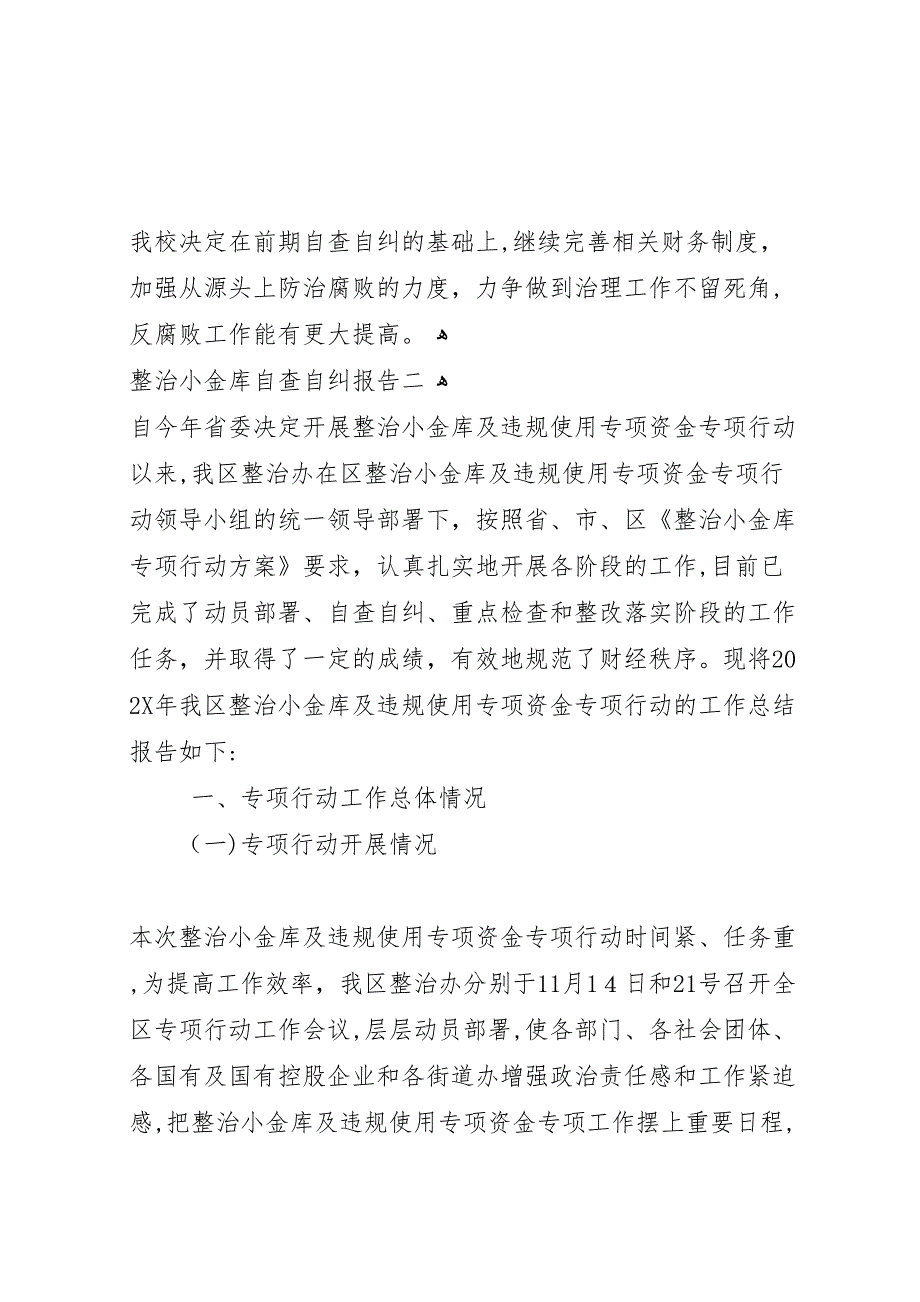 我校决定在前期自查自纠的基础上,继续完善相关财务制度，
加强从源头上防治腐败的力度，力争做到治理工作不留死角,
反腐败工作能有更大提高。 ﻫ
整治小金库自查自纠报告二 ﻫ
自今年省委决定开展整治小金库及违规使用专项资金专项行动
以来,我区整治办在区整治小金库及违规使用专项资金专项行
动领导小组的统一领导部署下，按照省、市、区《整治小金库
专项行动方案》要求，认真扎实地开展各阶段的工作,目前已
完成了动员部署、自查自纠、重点检查和整改落实阶段的工作
任务，并取得了一定的成绩，有效地规范了财经秩序。现将20
2X年我区整治小金库及违规使用专项资金专项行动的工作总结
报告如下:
一、专项行动工作总体情况
（一)专项行动开展情况
本次整治小金库及违规使用专项资金专项行动时间紧、任务重
,为提高工作效率，我区整治办分别于11月1４日和21号召开全
区专项行动工作会议,层层动员部署,使各部门、各社会团体、
各国有及国有控股企业和各街道办增强政治责任感和工作紧迫
感,把整治小金库及违规使用专项资金专项工作摆上重要日程,